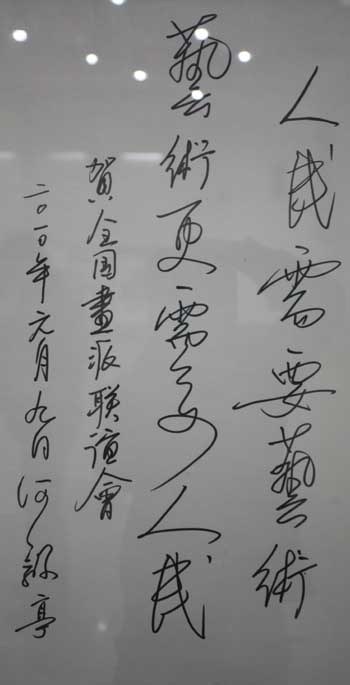 人民需要藝術
藝術更需要人民
賀全国畫派联誼會
二〇一〇年元月九日 亭